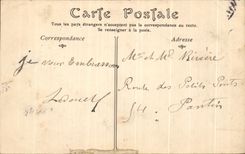 Carte Postale
Tous les pays étrangers n'acceptent pas la correspondance au recto.
Se renseigner à la poste.
Correspondance
Adresse
Mr et Me Rivière
je vous Embrasse
Route des Petits Ponts
54 Pantin